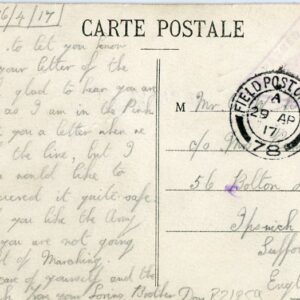 26/4/17
CARTE POSTALE
.. to let you know
your letter of the
glad to hear you are
as I am in the Pink
t you a letter when we
the line, but I
would like to
ceived it quite safe
you like the Army
you are not going
t of Marching.
care of yourself and the
from your Loving Brother Don
M Mr.
FIELD POST O
A
29 AP
17
78
c/o
56 Bolton
Ipswich
Suffo
Eng